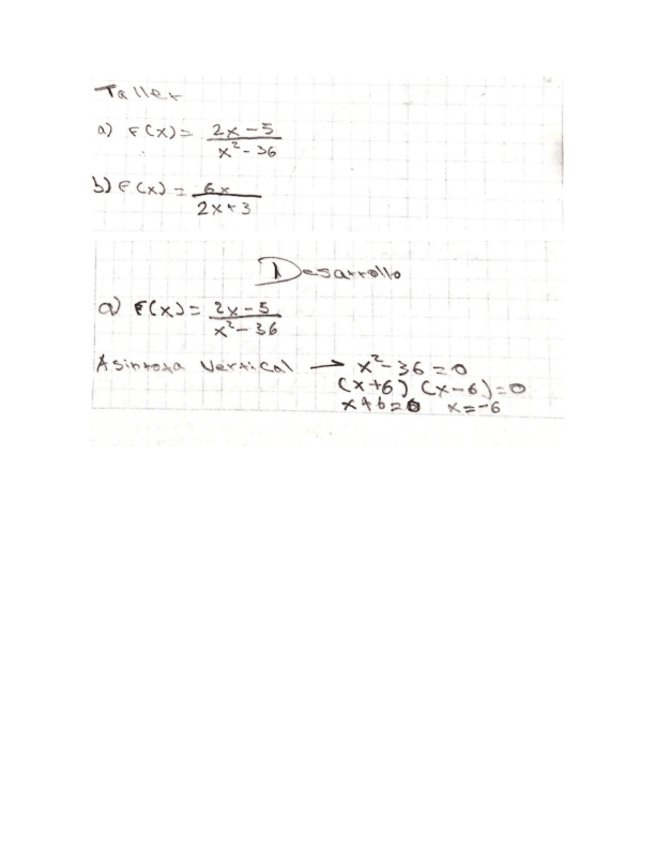 Taller
a) F(x) = 2x - 5 / x² - 36
b) F(x) = 6x / 2x + 3
Desarrollo
a) F(x) = 2x - 5 / x² - 36
Asintota Vertical → x² - 36 = 0
(x+6) (x-6) = 0
x + 6 = 0 x = -6